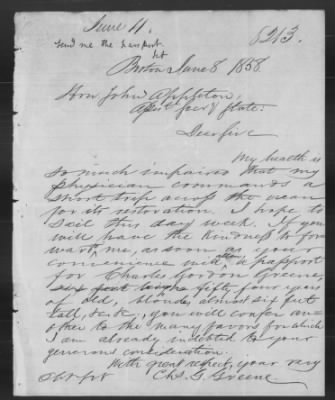 June 11.
8213.
send me the passport
Boston June 8 1858.
Hon John Appleton,
Asst Secy of State.
Dear Sir
My health is
so much impaired that my
physician commands a
short trip across the ocean
for its restoration. I hope to
sail this day week. If you
will have the kindness to for
ward me, as soon as your
convenience will admit, a passport
for Charles Gordon Greene,
six feet high, fifty four years
of old, blonde, almost six feet
tall, &c &c, you will confer an
other to the many favors for which
I am already indebted to your
generous consideration.
With great respect, your very
obt svt Chs. G. Greene